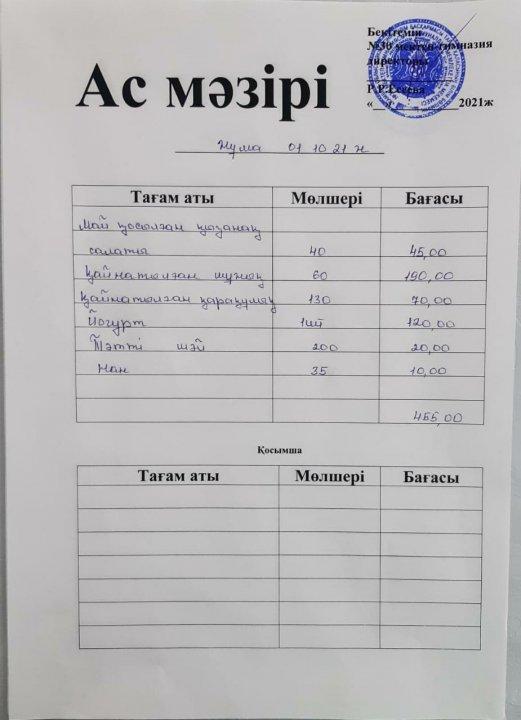 Бекітемін
№30 мектеп-гимназия
директоры
Р.Р.Есеева
« » 2021ж
Ас мәзірі
Жұма 01 10 21 ж
Тағам аты Мөлшері Бағасы
Май қосылған қызанақ
салаты 40 45,00
Қайнатылған шұжық 60 190,00
Қайнатылған қарақұмық 130 70,00
Йогурт 1шт 120,00
Тәтті шәй 200 20,00
Нан 35 10,00
455,00
Қосымша
Тағам аты Мөлшері Бағасы